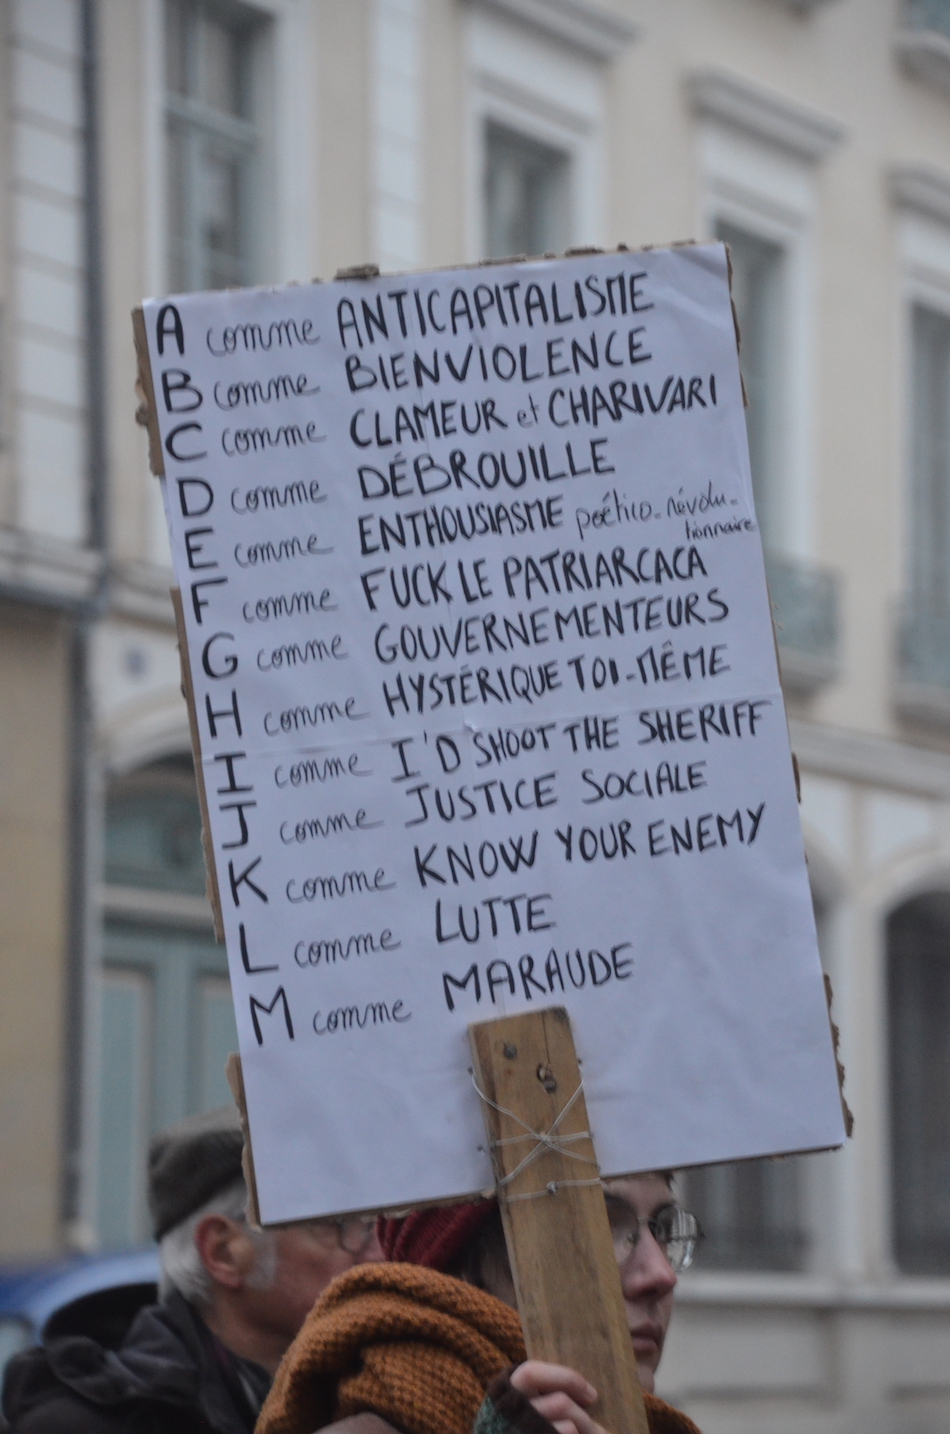 A comme ANTICAPITALISME
B comme BIENVIOLENCE
C comme CLAMEUR et CHARIVARI
D comme DÉBROUILLE
E comme ENTHOUSIASME poético-révolu-
tionnaire
F comme FUCK LE PATRIARCACA
G comme GOUVERNEMENTEURS
H comme HYSTÉRIQUE TOI-MÊME
I comme I'D SHOOT THE SHERIFF
J comme JUSTICE SOCIALE
K comme KNOW YOUR ENEMY
L comme LUTTE
M comme MARAUDE